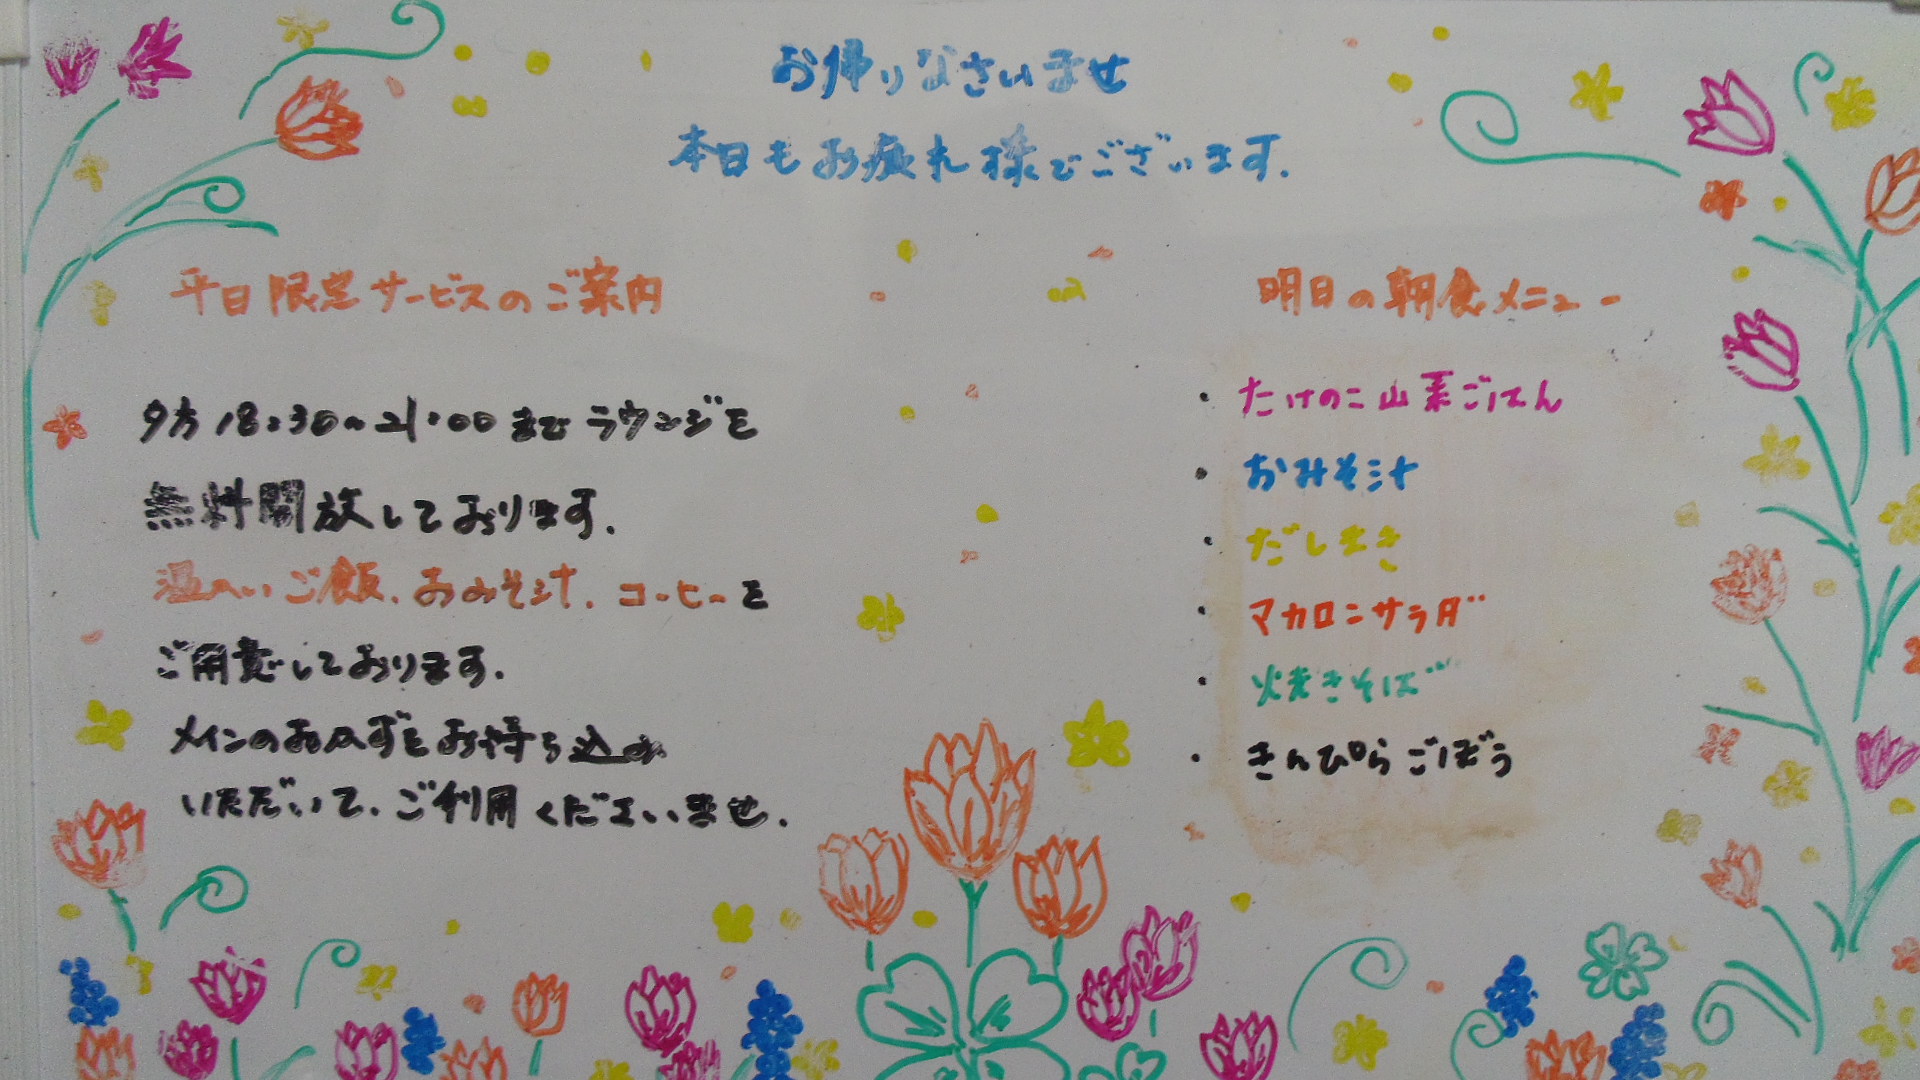 お帰りなさいませ
本日もお疲れ様でございます.
平日限定サービスのご案内
夕方18:30~21:00までラウンジを
無料開放しております.
温かいご飯.おみそ汁.コーヒーを
ご用意しております.
メインのおかずをお持ち込み
いただいて.ご利用くださいませ.
明日の朝食メニュー
・たけのこ山菜ごはん
・おみそ汁
・だしまき
・マカロニサラダ
・焼きそば
・きんぴらごぼう